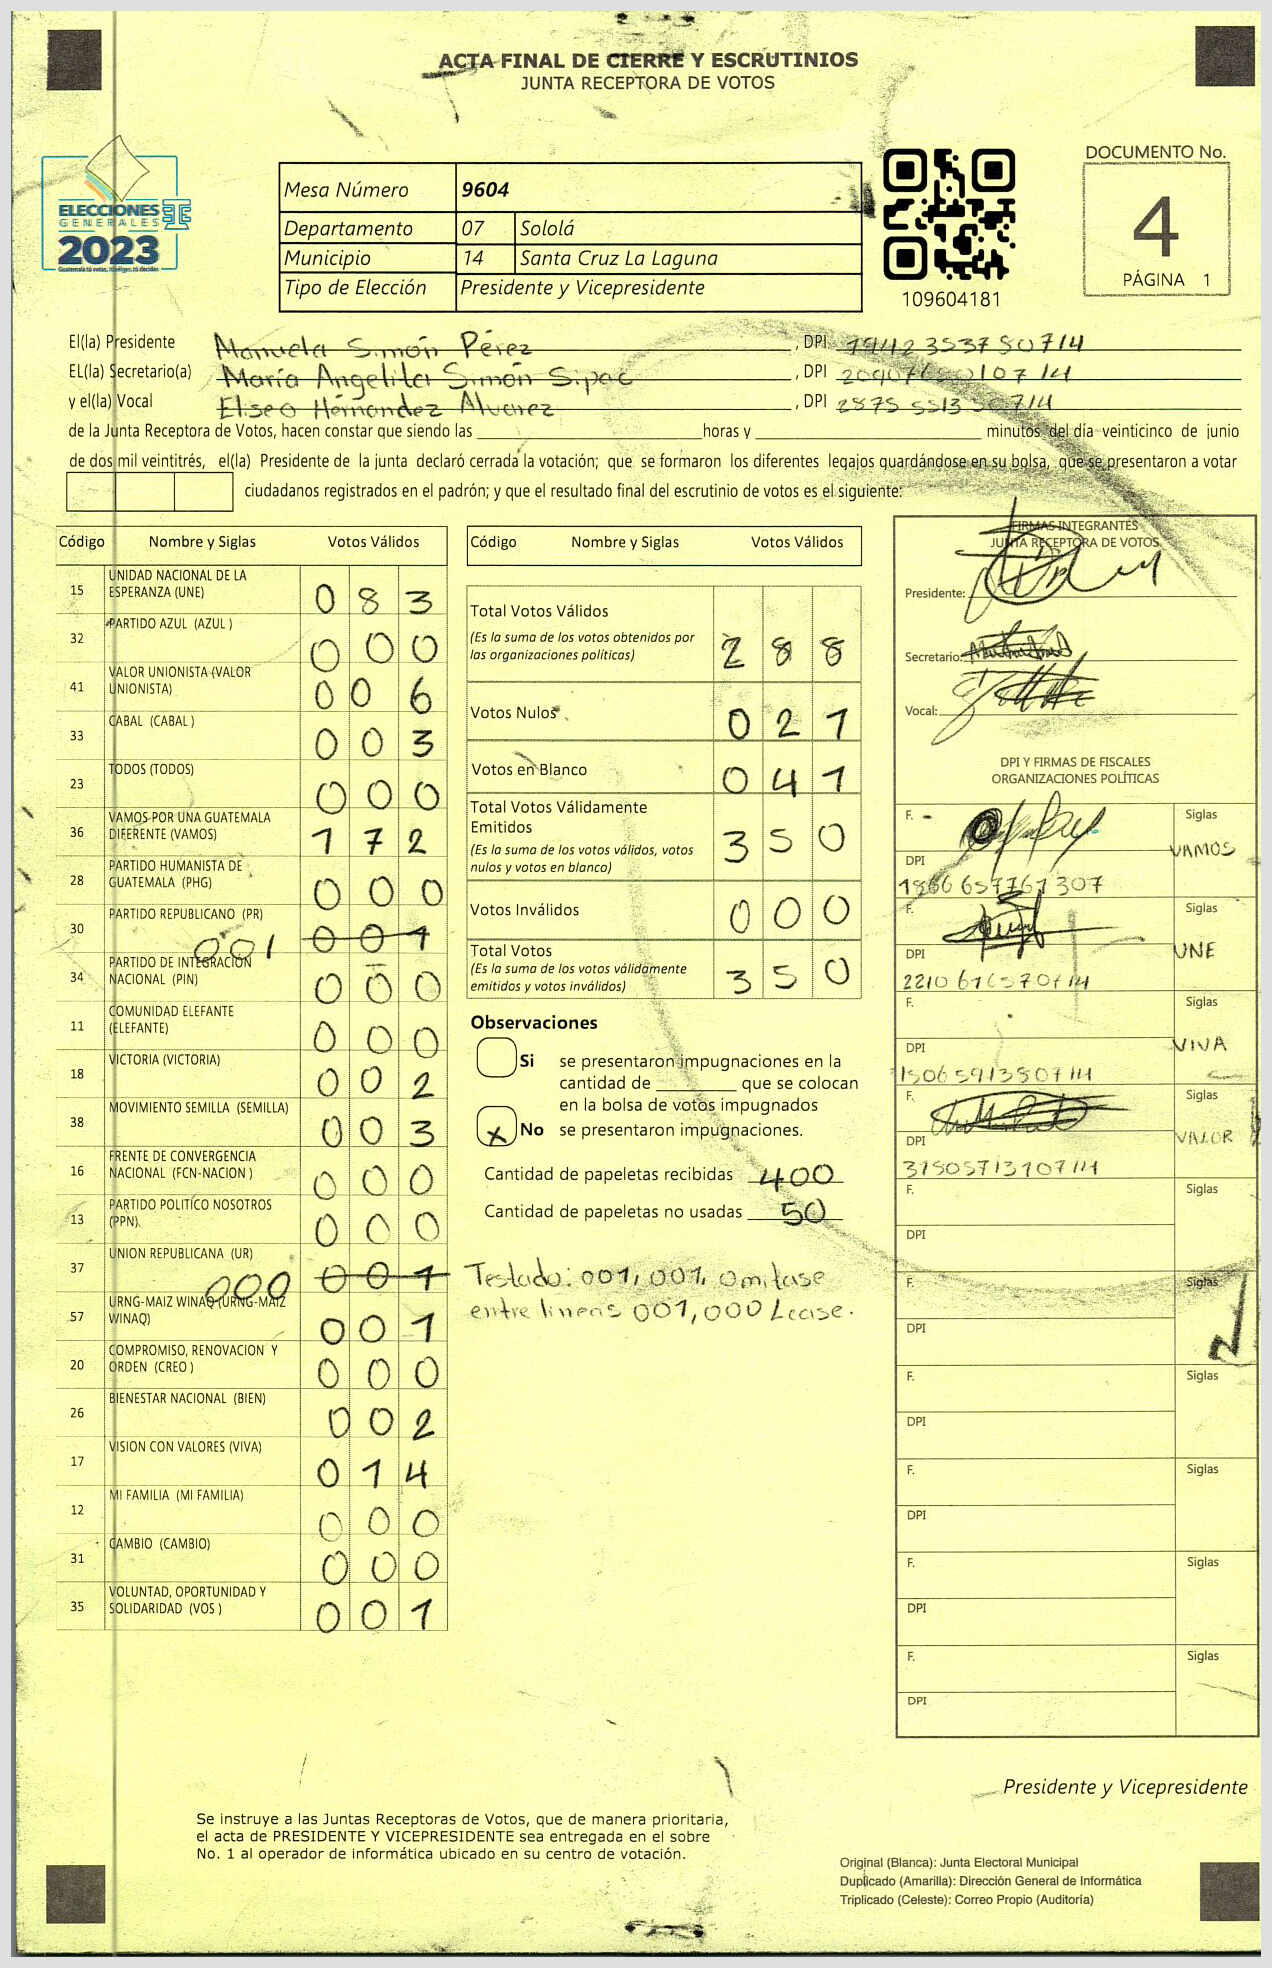 ACTA FINAL DE CIERRE Y ESCRUTINIOS
JUNTA RECEPTORA DE VOTOS
ELECCIONES
GENERALES
2023
Guatemala tú votas, tú eliges, tú decides
Mesa Número 9604
Departamento 07 Sololá
Municipio 14 Santa Cruz La Laguna
Tipo de Elección Presidente y Vicepresidente
109604181
DOCUMENTO No.
4
PÁGINA 1
El(la) Presidente Manuela Simón Pérez , DPI
EL(la) Secretario(a) María Angelita Simón Sipac , DPI
y el(la) Vocal Eliseo Hernandez Alvarez , DPI
de la Junta Receptora de Votos, hacen constar que siendo las horas y minutos del día veinticinco de junio
de dos mil veintitrés, el(la) Presidente de la junta declaró cerrada la votación; que se formaron los diferentes legajos guardándose en su bolsa, que se presentaron a votar
ciudadanos registrados en el padrón; y que el resultado final del escrutinio de votos es el siguiente:
Código Nombre y Siglas Votos Válidos
15 UNIDAD NACIONAL DE LA ESPERANZA (UNE) 0 8 3
32 PARTIDO AZUL (AZUL ) 0 0 0
41 VALOR UNIONISTA (VALOR UNIONISTA) 0 0 6
33 CABAL (CABAL ) 0 0 3
23 TODOS (TODOS) 0 0 0
36 VAMOS POR UNA GUATEMALA DIFERENTE (VAMOS) 1 7 2
28 PARTIDO HUMANISTA DE GUATEMALA (PHG) 0 0 0
30 PARTIDO REPUBLICANO (PR) 001 0 0 1
34 PARTIDO DE INTEGRACIÓN NACIONAL (PIN) 0 0 0
11 COMUNIDAD ELEFANTE (ELEFANTE) 0 0 0
18 VICTORIA (VICTORIA) 0 0 2
38 MOVIMIENTO SEMILLA (SEMILLA) 0 0 3
16 FRENTE DE CONVERGENCIA NACIONAL (FCN-NACION ) 0 0 0
13 PARTIDO POLITICO NOSOTROS (PPN). 0 0 0
37 UNION REPUBLICANA (UR) 000 0 0 1
57 URNG-MAIZ WINAQ (URNG-MAIZ WINAQ) 0 0 1
20 COMPROMISO, RENOVACION Y ORDEN (CREO ) 0 0 0
26 BIENESTAR NACIONAL (BIEN) 0 0 2
17 VISION CON VALORES (VIVA) 0 1 4
12 MI FAMILIA (MI FAMILIA) 0 0 0
31 CAMBIO (CAMBIO) 0 0 0
35 VOLUNTAD, OPORTUNIDAD Y SOLIDARIDAD (VOS ) 0 0 1
Código Nombre y Siglas Votos Válidos
Total Votos Válidos 2 8 8
(Es la suma de los votos obtenidos por
las organizaciones políticas)
Votos Nulos 0 2 1
Votos en Blanco 0 4 1
Total Votos Válidamente
Emitidos 3 5 0
(Es la suma de los votos válidos, votos
nulos y votos en blanco)
Votos Inválidos 0 0 0
Total Votos 3 5 0
(Es la suma de los votos válidamente
emitidos y votos inválidos)
Observaciones
Si se presentaron impugnaciones en la
cantidad de que se colocan
en la bolsa de votos impugnados
x No se presentaron impugnaciones.
Cantidad de papeletas recibidas 400
Cantidad de papeletas no usadas 50
Testado: 001, 001, Omitase
entre lineas 001, 000 Lease.
FIRMAS INTEGRANTES
JUNTA RECEPTORA DE VOTOS
Presidente:
Secretario:
Vocal:
DPI Y FIRMAS DE FISCALES
ORGANIZACIONES POLÍTICAS
F. Siglas
VAMOS
DPI
F. Siglas
UNE
DPI
F. Siglas
VIVA
DPI
F. Siglas
VALOR
DPI
F. Siglas
DPI
F. Siglas
DPI
F. Siglas
DPI
F. Siglas
DPI
F. Siglas
DPI
F. Siglas
DPI
Presidente y Vicepresidente
Se instruye a las Juntas Receptoras de Votos, que de manera prioritaria,
el acta de PRESIDENTE Y VICEPRESIDENTE sea entregada en el sobre
No. 1 al operador de informática ubicado en su centro de votación.
Original (Blanca): Junta Electoral Municipal
Duplicado (Amarilla): Dirección General de Informática
Triplicado (Celeste): Correo Propio (Auditoría)